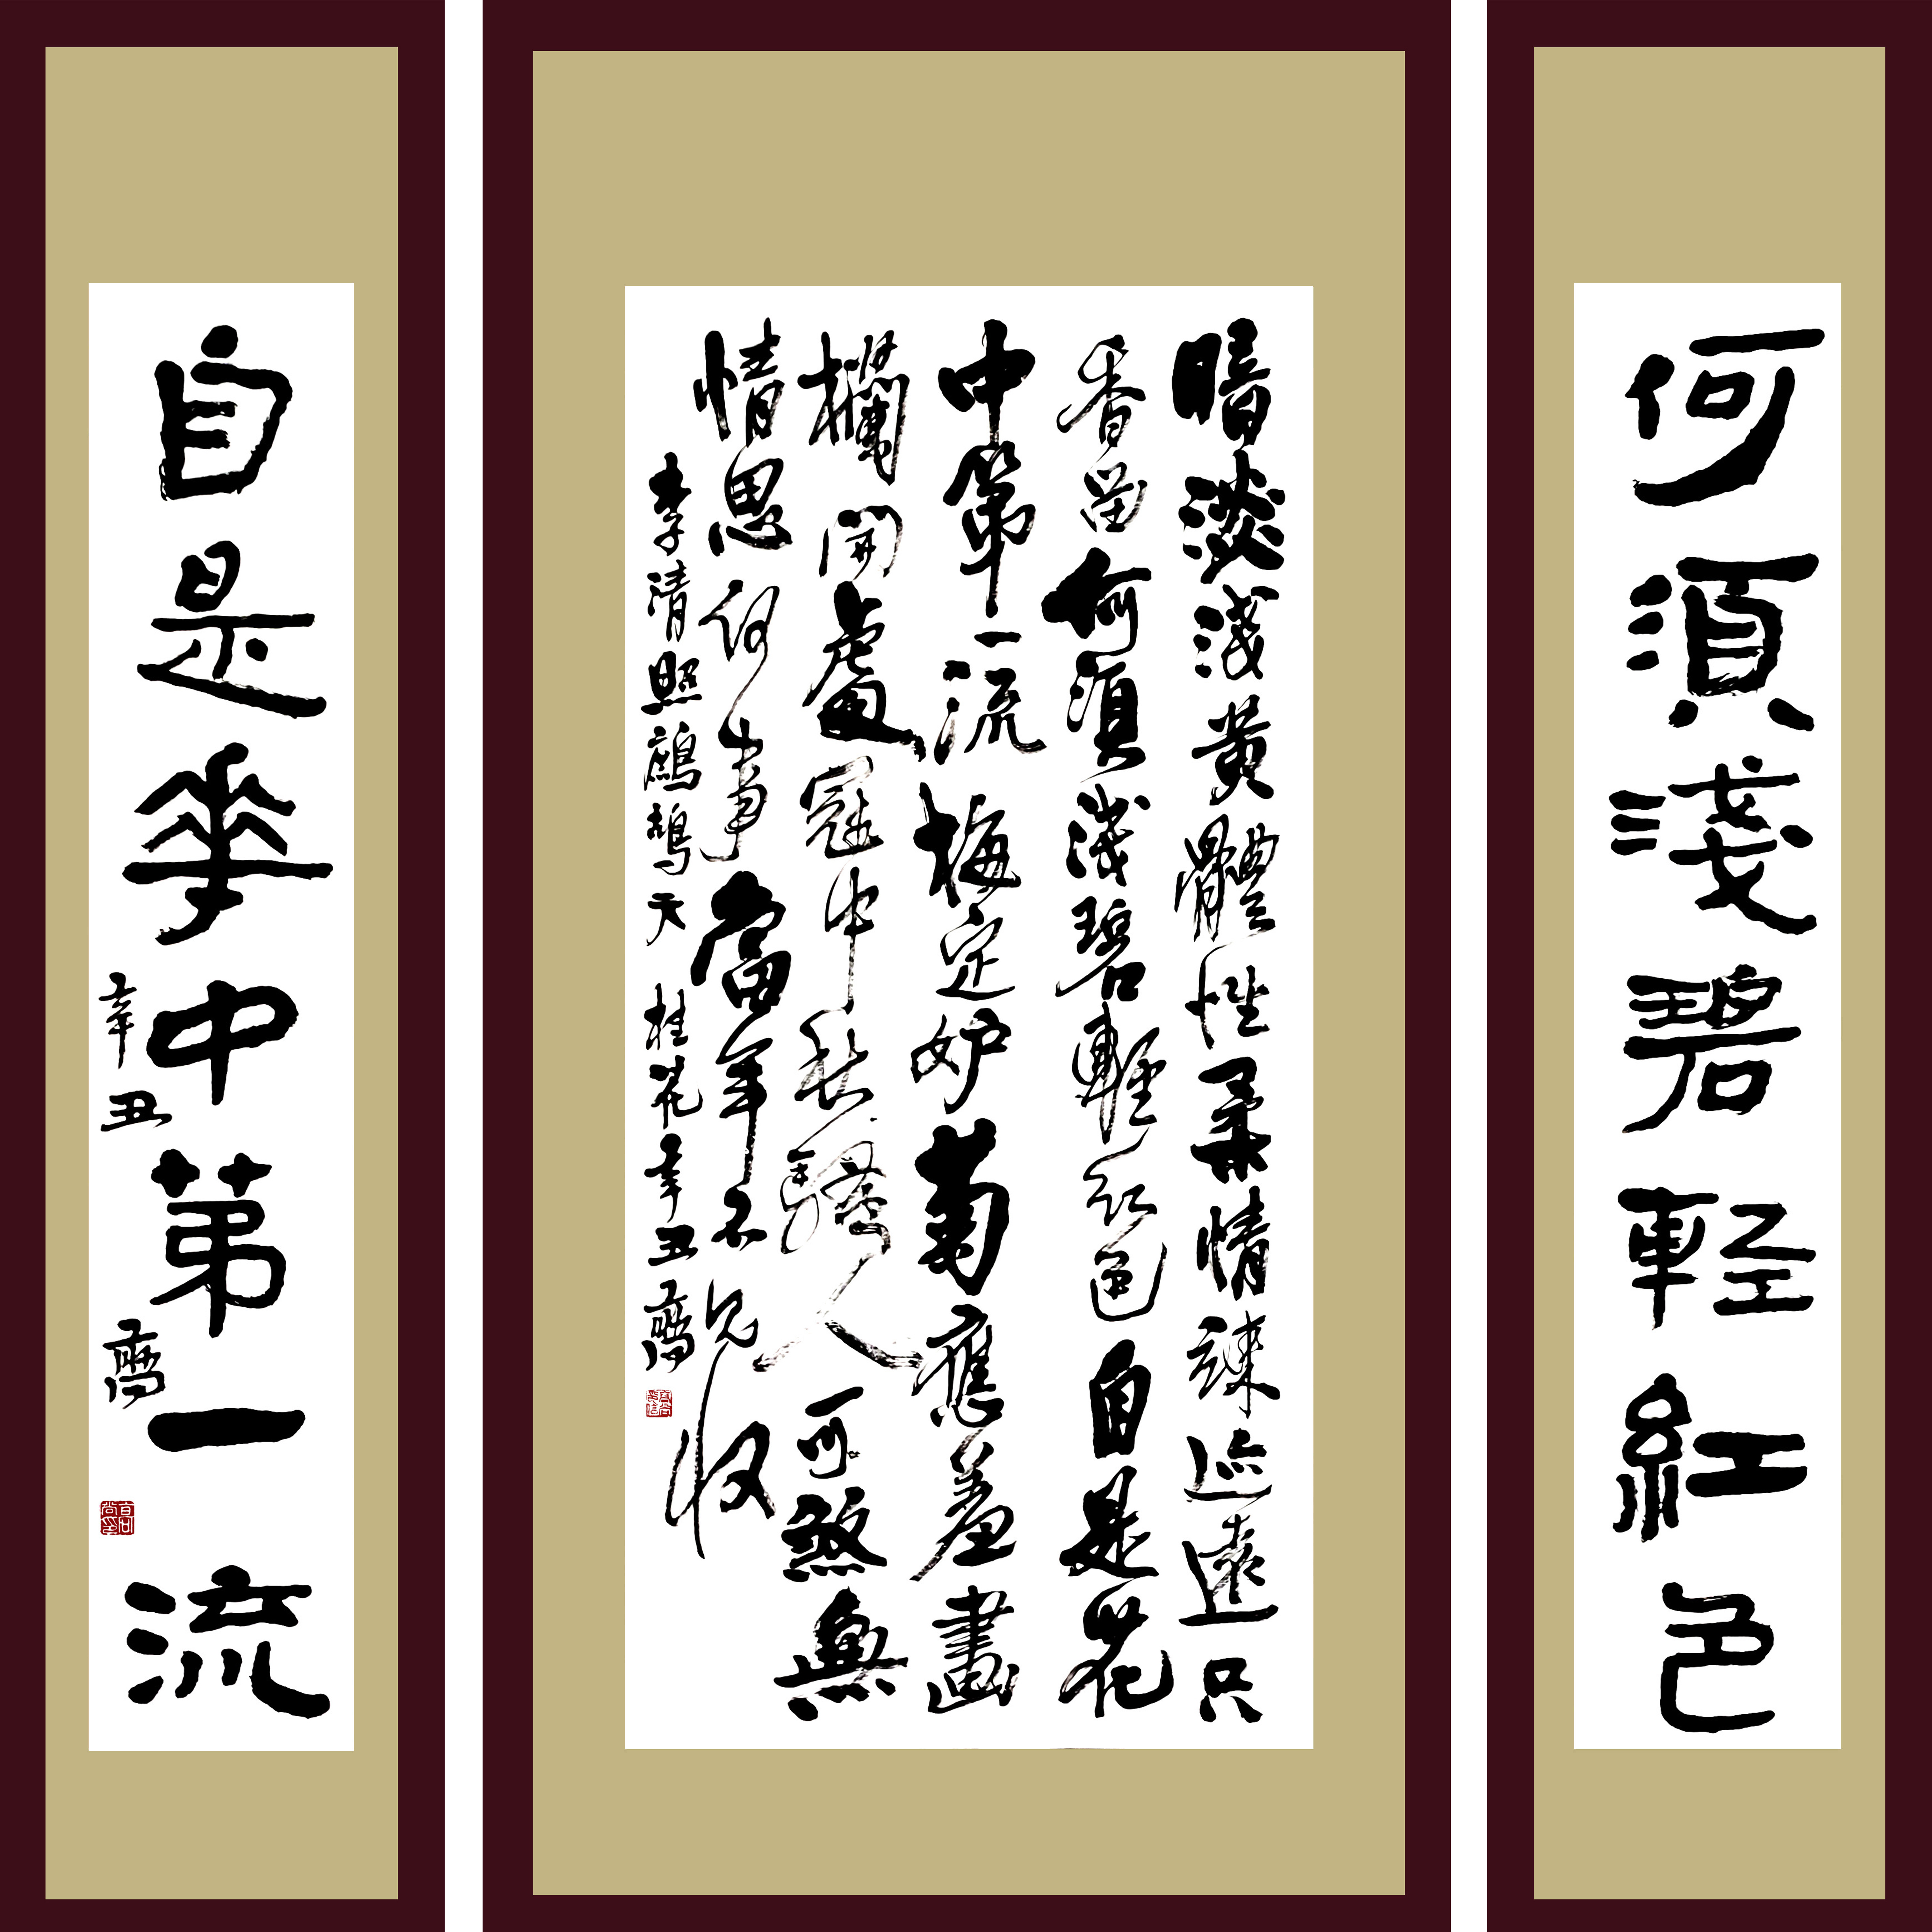 何須淺碧輕紅色
暗淡淺黃體性柔情疎迹遠只
香留何須淺碧輕紅色自是花
中第一流梅定妒菊應羞畫
欄開處冠中秋騷人可煞無
情思何事當年不見收
李清照鷓鴣天 桂花 辛丑
自是華中第一流
辛丑